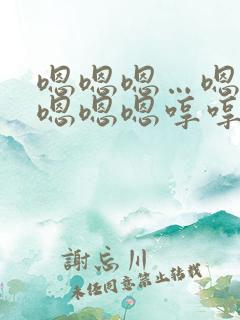 嗯嗯嗯…嗯
嗯嗯嗯哼哼
謝忘川
未经同意禁止转载